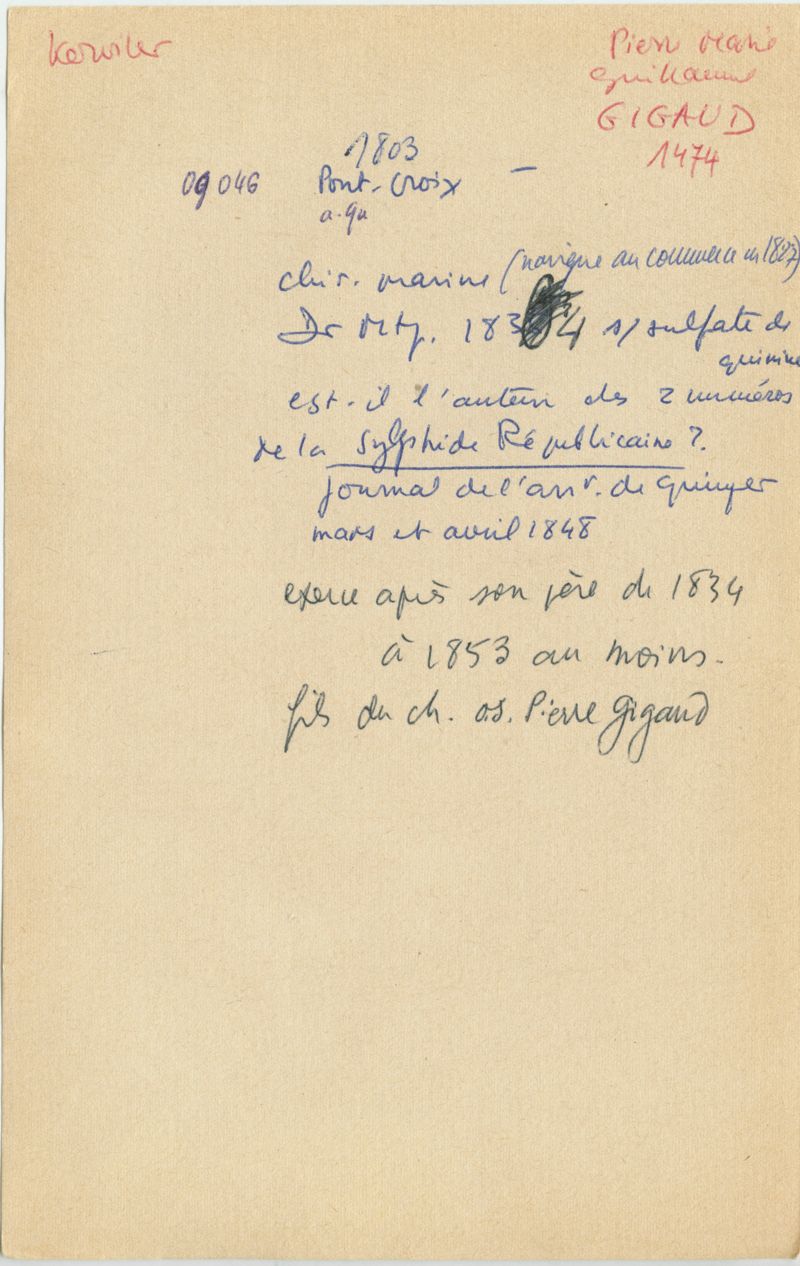 Kerviler
Pierre Marie
Guillaume
GIGAUD
1474
1803
09046 Pont-Croix –
a. qu
chir. marine (navigue au commerce en 1827)
Dr Mtp. 1834 s/ sulfate de
quinine
est-il l'auteur des 2 numéros
de la Sylphide Républicaine ?
journal de l'arrt. de Quimper
mars et avril 1848
exerce après son père de 1834
à 1853 au moins.
fils du ch. o.s. Pierre Gigaud